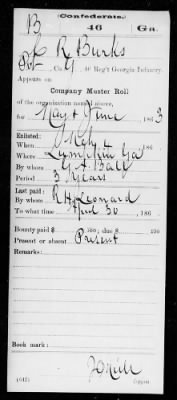 Confederate.
B 46 Ga.
C R Burks
Pvt, Co. G, 46 Reg't Georgia Infantry.
Appears on
Company Muster Roll
of the organization named above,
for May & June, 1863
Enlisted:
When , 186
Where Lumpkin Ga
By whom G A Ball
Period 3 Years
Last paid:
By whom R H Leonard
To what time April 30, 186
Bounty paid $ 100; due $ 100
Present or absent Present
Remarks:
Book mark:
(642)
Copyist.